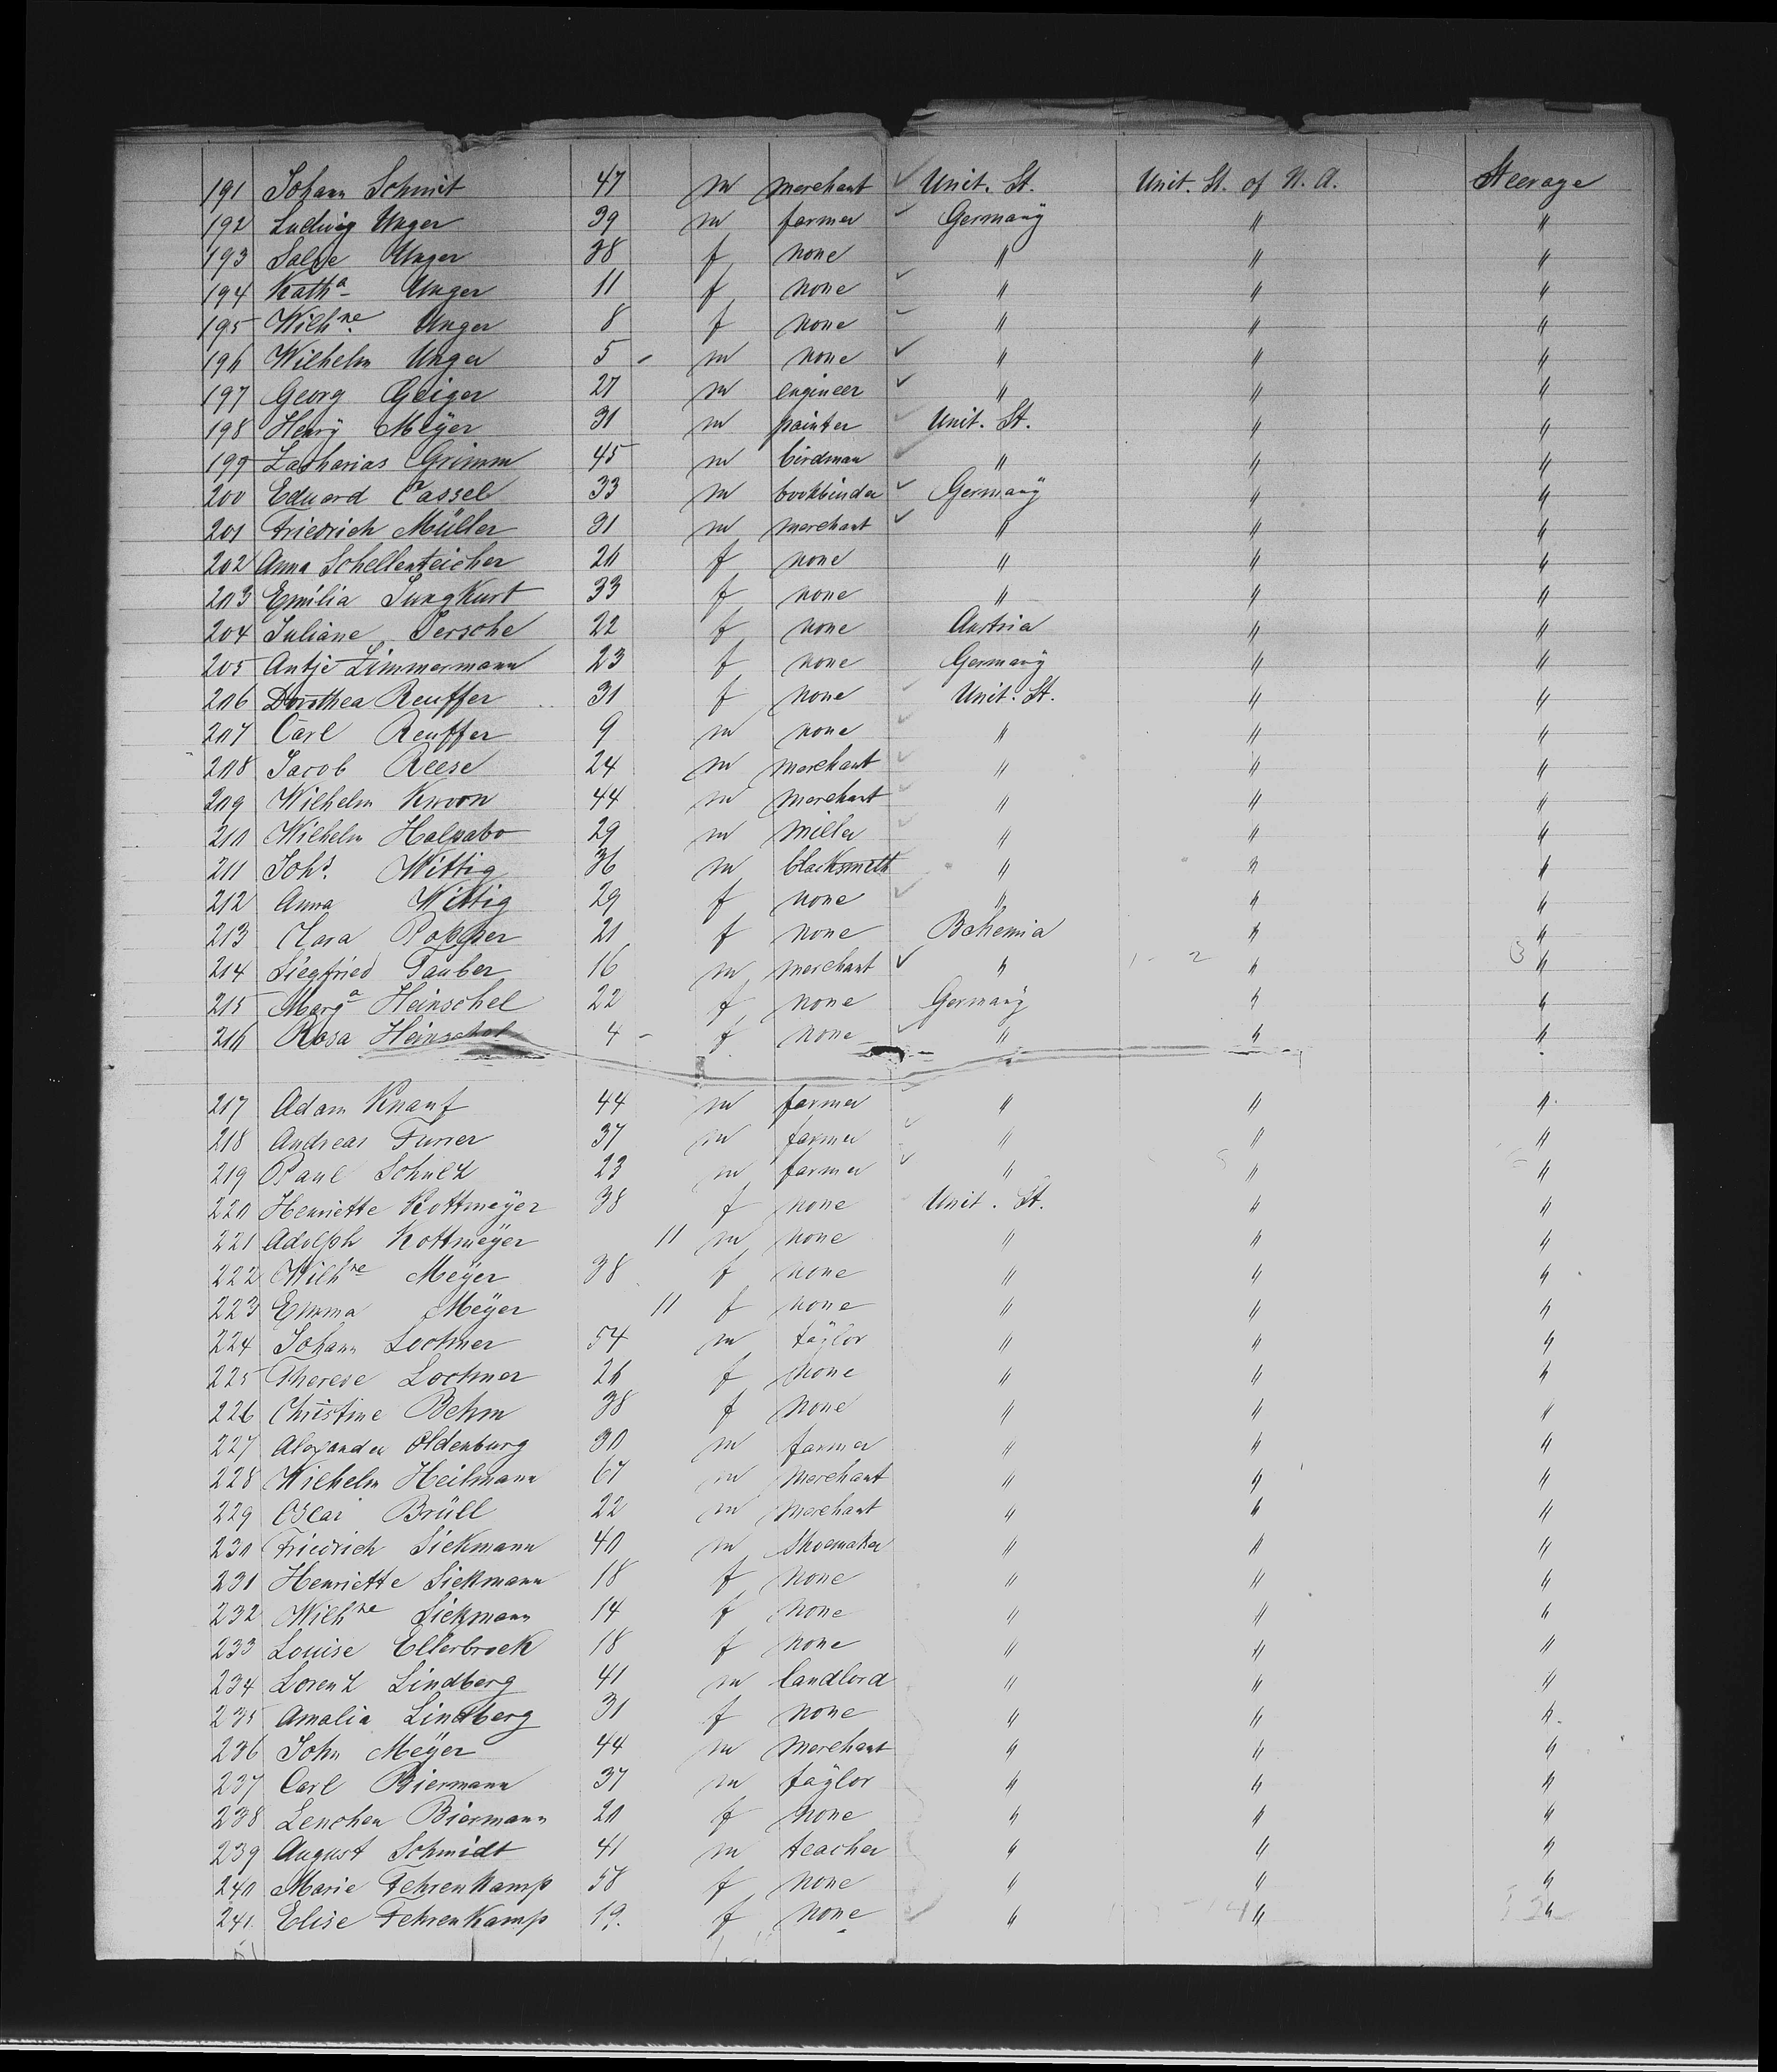 191 Johann Schmit 47 m merchant Unit. St. Unit. St. of N. A. Steerage
192 Ludwig Unger 39 m farmer Germanÿ " "
193 Unger 38 f none " " "
194 Kath<sup>a</sup> Unger 11 f none " " "
195 Wilh<sup>ne</sup> Unger 8 f none " " "
196 Wilhelm Unger 5 - m none " " "
197 Georg Geiger 27 m engineer " " "
198 Henrÿ Meÿer 31 m painter Unit. St. " "
199 Zacharias Grimm 45 m birdman " " "
200 Eduard Cassel 33 m bookbinder Germanÿ " "
201 Friedrich Müller 31 m merchant " " "
202 Anna Schellenteicher 26 f none " " "
203 Emilia Jungkurt 33 f none " " "
204 Juliane Persche 22 f none Austria " "
205 Antje Zimmermann 23 f none Germanÿ " "
206 Dorothea Reuffer 31 f none Unit. St. " "
207 Carl Reuffer 9 m none " " "
208 Jacob Reese 24 m merchant " " "
209 Wilhelm Kroon 44 m merchant " " "
210 Wilhelm 29 m miller " " "
211 Joh<sup>s</sup>. Wittig 36 m blacksmith " " "
212 Anna Wittig 29 f none " " "
213 Clara Popper 21 f none Bohemia " "
214 Siegfried Tauber 16 m merchant " " "
215 Marg<sup>a</sup> Heinschel 22 f none Germanÿ " "
216 Rosa Heinschel 4 - f none " " "
217 Adam Knauf 44 m farmer " " "
218 Andreas Furrer 37 m farmer " " "
219 Paul Schulz 23 m farmer " " "
220 Henriette Kottmeÿer 38 f none Unit. St. " "
221 Adolph Kottmeÿer 11 m none " " "
222 Wilh<sup>ne</sup> Meÿer 38 f none " " "
223 Emma Meÿer 11 f none " " "
224 Johann Lochner 54 m taÿlor " " "
225 Therese Lochner 26 f none " " "
226 Christine Behm 38 f none " " "
227 Alexander Oldenburg 30 m farmer " " "
228 Wilhelm Heilmann 67 m merchant " " "
229 Oscar Brüll 22 m merchant " " "
230 Friedrich Siekmann 40 m shoemaker " " "
231 Henriette Siekmann 18 f none " " "
232 Wilh<sup>ne</sup> Siekmann 14 f none " " "
233 Louise Ellerbrock 18 f none " " "
234 Lorenz Lindberg 41 m landlord " " "
235 Amalia Lindberg 31 f none " " "
236 John Meÿer 44 m merchant " " "
237 Carl Biermann 37 m taÿlor " " "
238 Lenchen Biermann 20 f none " " "
239 August Schmidt 41 m teacher " " "
240 Marie Fehrenkamp 58 f none " " "
241. Elise Fehrenkamp 19. f none " " "